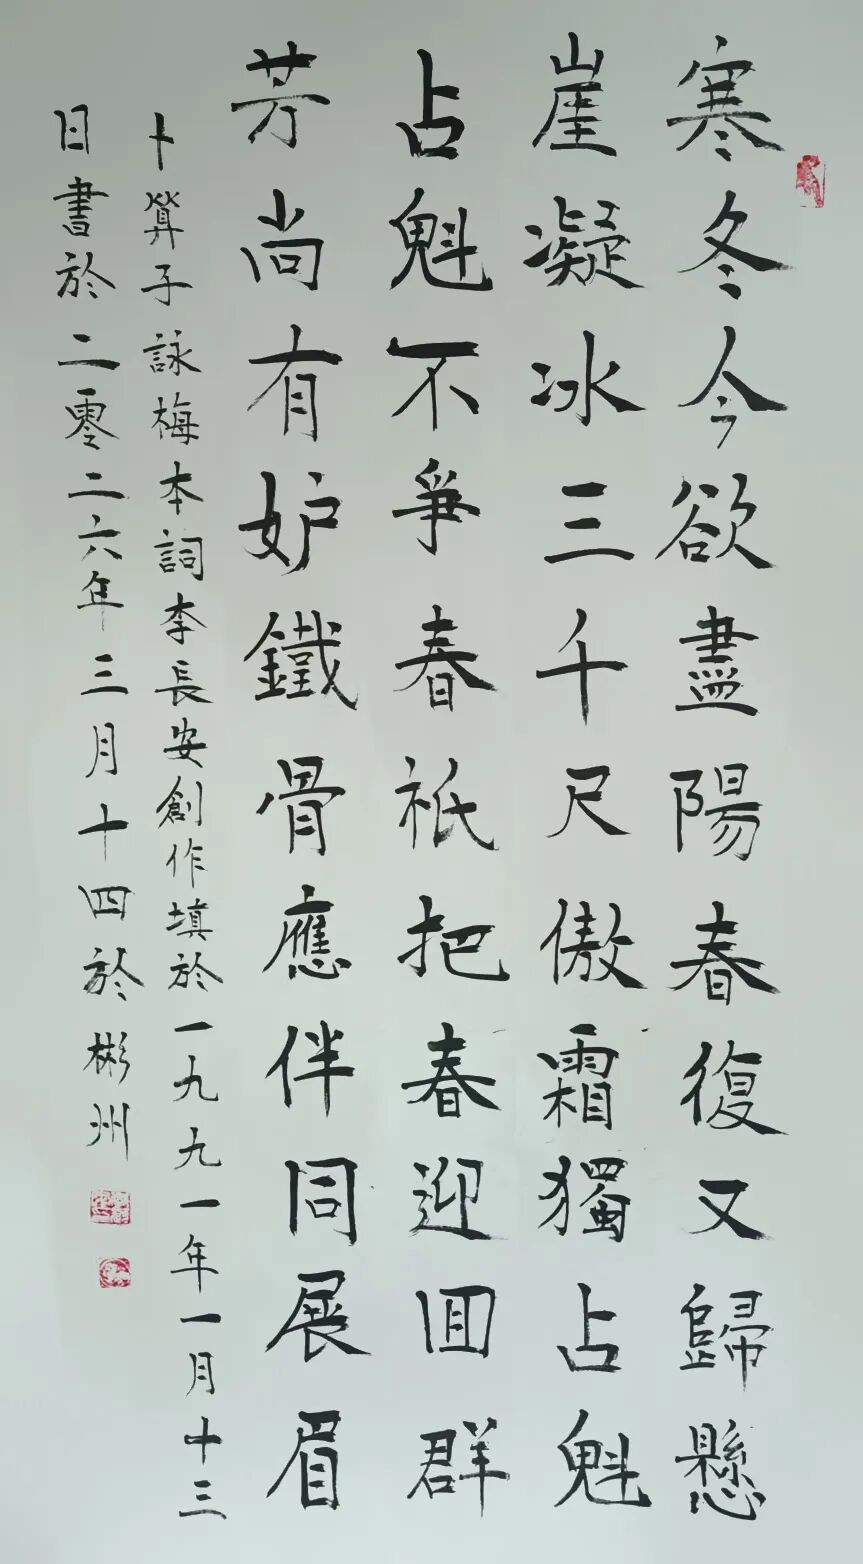 寒冬今欲盡陽春復又歸懸
崖凝冰三千尺傲霜獨占魁
占魁不爭春祇把春迎回群
芳尚有妒鐵骨應伴同展眉
卜算子詠梅本詞李長安創作填於一九九一年一月十三
日書於二零二六年三月十四於彬州